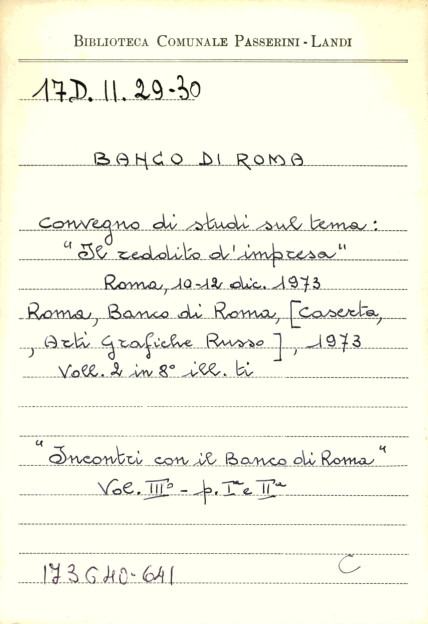 BIBLIOTECA COMUNALE PASSERINI - LANDI
17D. II. 29-30
BANCO DI ROMA
Convegno di studi sul tema:
"Il reddito d'impresa"
Roma, 10-12 dic. 1973
Roma, Banco di Roma, [Caserta,
, Arti Grafiche Russo], 1973
Voll. 2 in 8° ill. ti
"Incontri con il Banco di Roma"
Vol. III° - p. Iª e IIª
173640-641
C